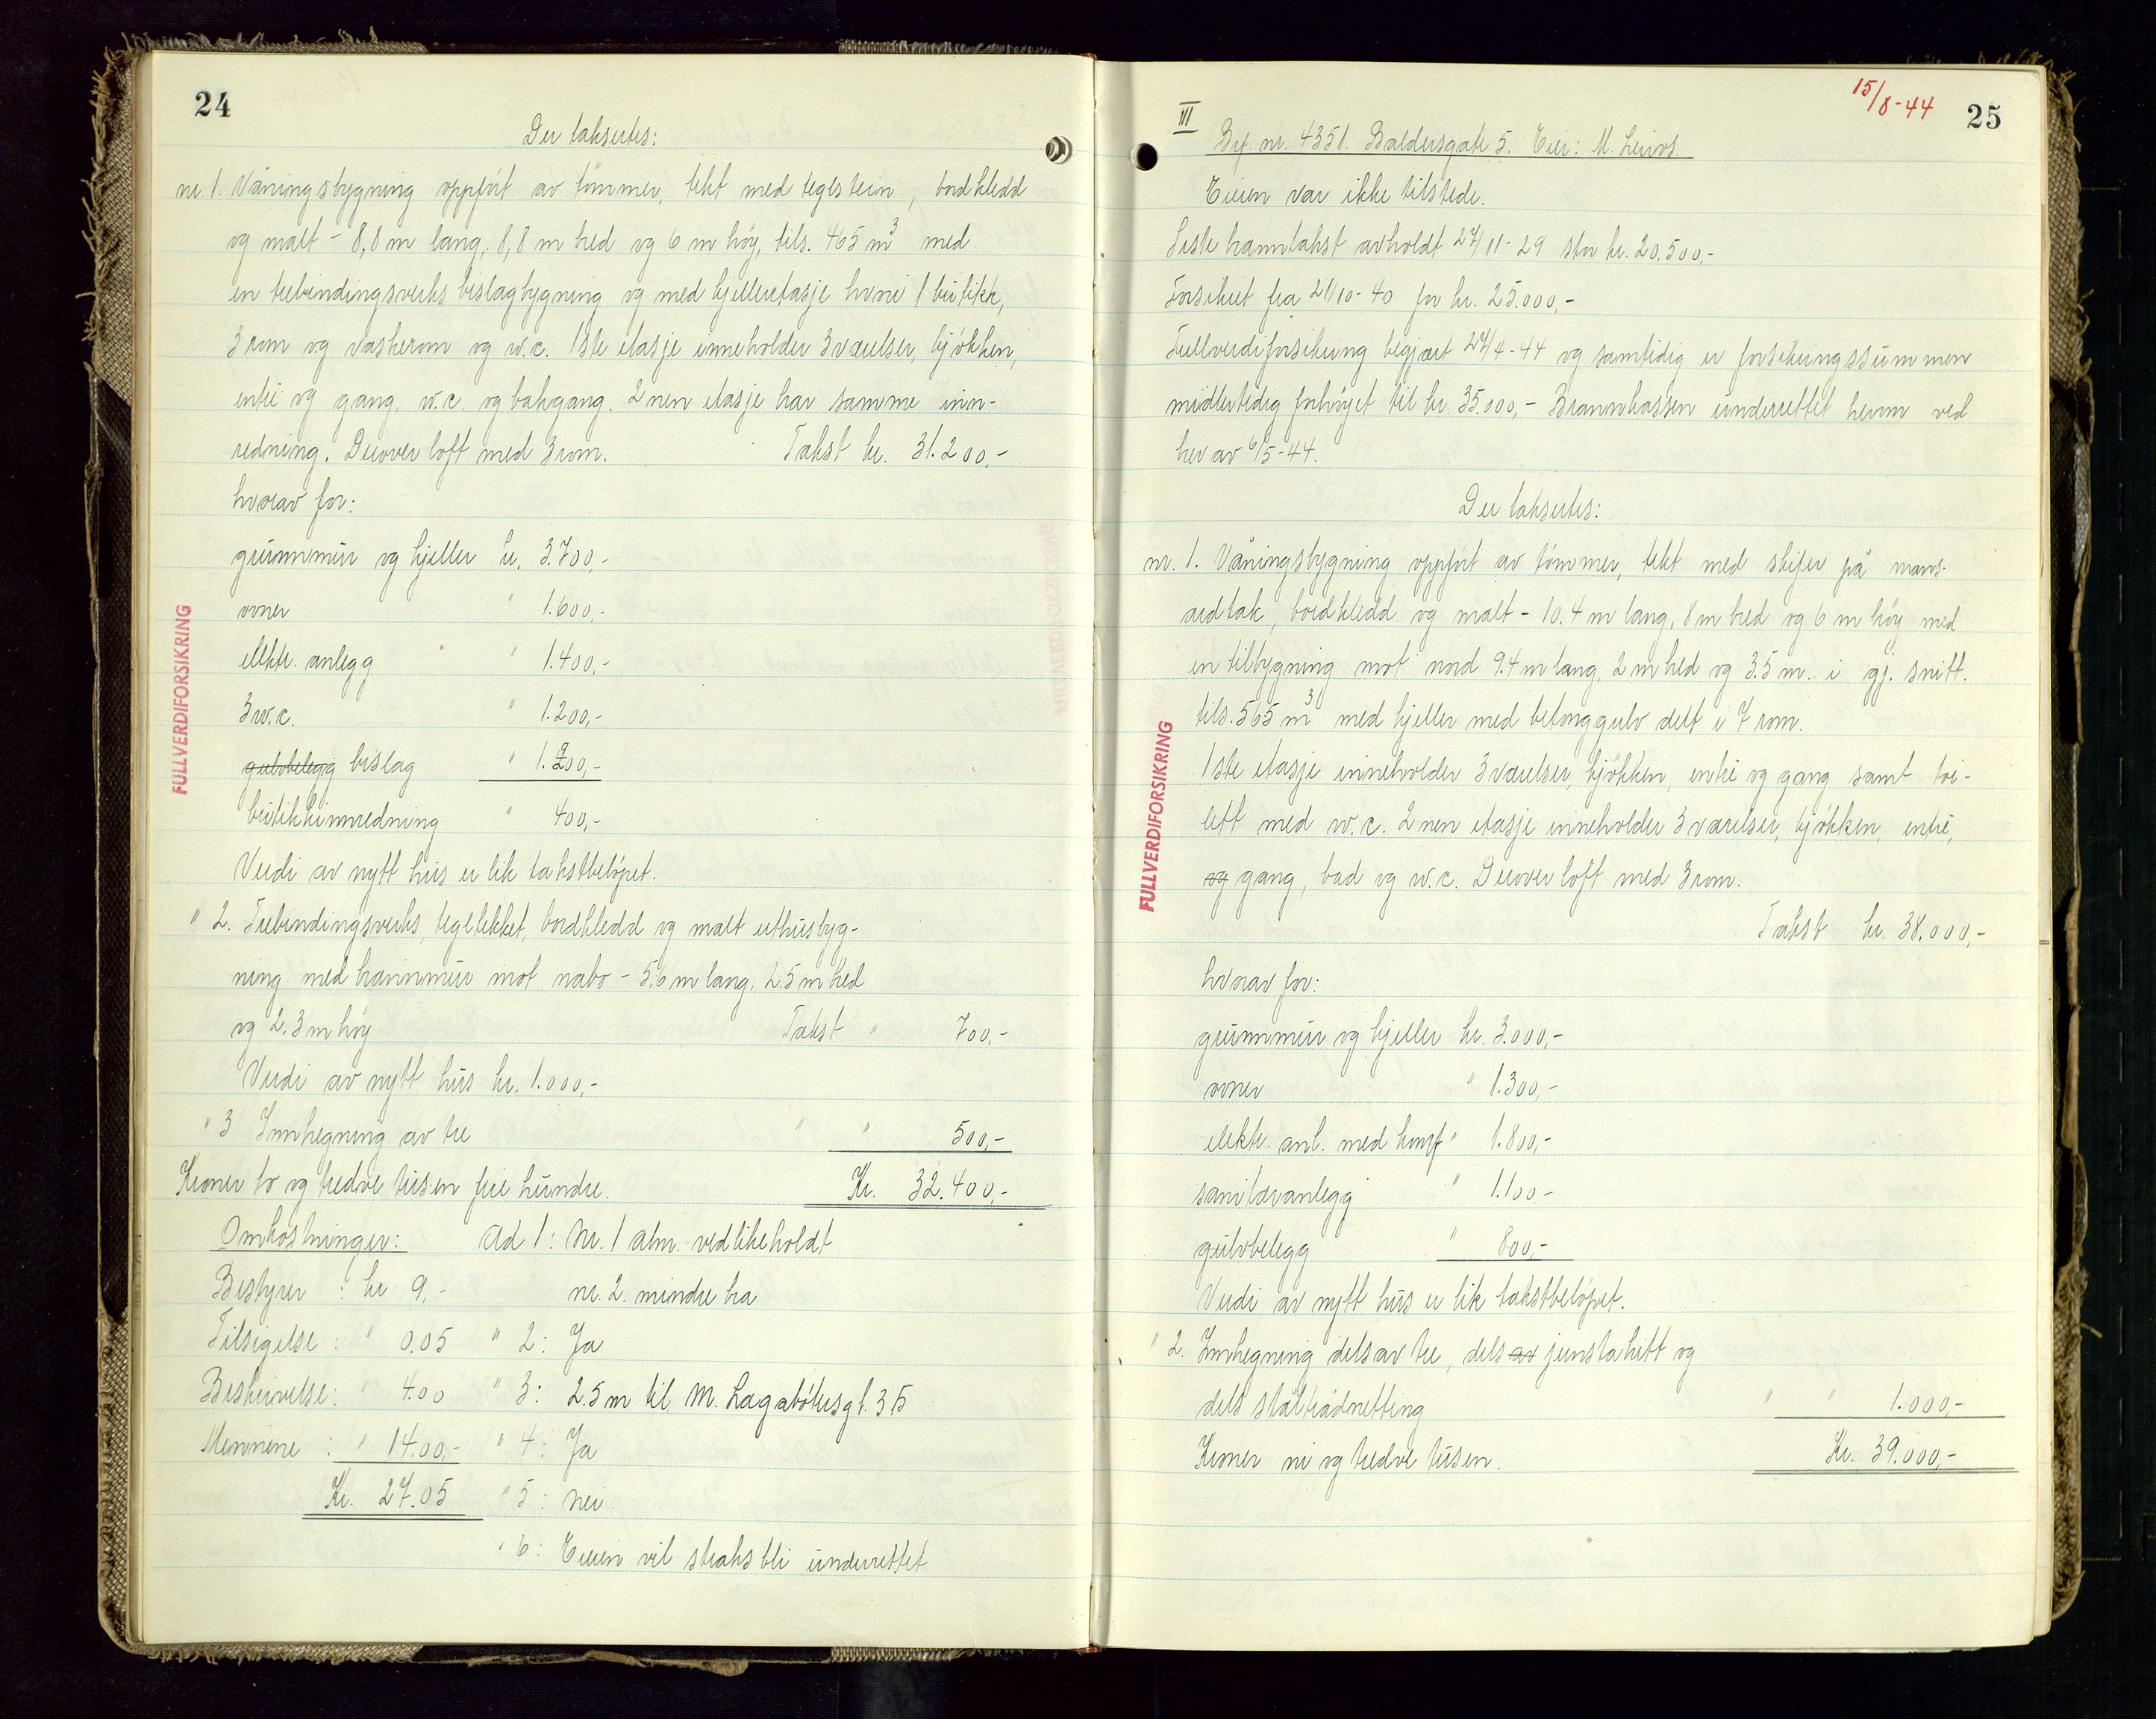 24
Der takseres:
nr. 1. Våningsbygning oppført av tømmer, tekt med teglstein, bordkledd
og malt - 8,8 m lang, 8,8 m bred og 6 m høy, tils. 465 m³ med
en trebindingsverks bislagbygning og med kjelleretasje hvori 1 butikk,
3 rom og vaskerom og w.c. 1ste etasje inneholder 3 værelser, kjøkken,
entré og gang, w.c. og bakgang. 2nen etasje har samme inn-
redning. Derover loft med 3 rom. Takst kr. 31.200,-
hvorav for:
grunnmur og kjeller kr. 3.700,-
ovner " 1.600,-
elektr. anlegg " 1.400,-
3 w.c. " 1.200,-
gulvbelegg bislag " 1.200,-
butikkinnredning " 400,-
Verdi av nytt hus er lik takstbeløpet.
" 2. Trebindingsverks, tegltekket, bordkledd og malt uthusbyg-
ning med brannmur mot nabo - 5.6 m lang, 2.5 m bred
og 2.3 m høy Takst " 700,-
Verdi av nytt hus kr. 1.000,-
" 3 Innhegning av tre " " 500,-
Kroner to og tredve tusen fire hundre. Kr. 32.400,-
Omkostninger: Ad 1: Nr. 1 alm. vedlikeholdt
Bestyrer : kr 9,- nr. 2. mindre bra
Tilsigelse : " 0.05 " 2: Ja
Beskrivelse: " 4.00 " 3: 2.5 m til M. Lagabøtersgt. 35
Mennene : " 14.00,- " 4: Ja
Kr. 27.05 " 5: nei
" 6: Eieren vil straks bli underrettet
FULLVERDIFORSIKRING
15/8-44 25
III
Brf. nr. 4351. Baldersgate 5. Eier: M. Leirós
Eieren var ikke tilstede.
Siste branntakst avholdt 27/11-29 stor kr. 20.500,-
Forsikret fra 21/10-40 for kr. 25.000,-
Fullverdiforsikring begjært 27/4-44 og samtidig er forsikringssummen
midlertidig forhøyet til kr. 35.000,- Brannkassen underrettet herom ved
brev av 6/5-44.
Der takseres:
nr. 1. Våningsbygning oppført av tømmer, tekt med skifer på mans-
ardtak, bordkledd og malt - 10.4 m lang, 8 m bred og 6 m høy med
en tilbygning mot nord 9.4 m lang, 2 m bred og 3.5 m. i gj. snitt.
tils. 565 m³ med kjeller med betonggulv delt i 7 rom.
1ste etasje inneholder 3 værelser, kjøkken, entré og gang samt toi-
lett med w.c. 2nen etasje inneholder 3 værelser, kjøkken, entré,
og gang, bad og w.c. Derover loft med 3 rom.
Takst kr. 38.000,-
hvorav for:
grunnmur og kjeller kr. 3.000,-
ovner " 1.300,-
elektr. anl. med komf " 1.800,-
sanitæranlegg " 1.100.-
gulvbelegg " 800,-
Verdi av nytt hus er lik takstbeløpet.
" 2. Innhegning dels av tre, dels av jernstakitt og
dels ståltrådnetting " " 1.000,-
Kroner ni og tredve tusen. Kr. 39.000,-
FULLVERDIFORSIKRING